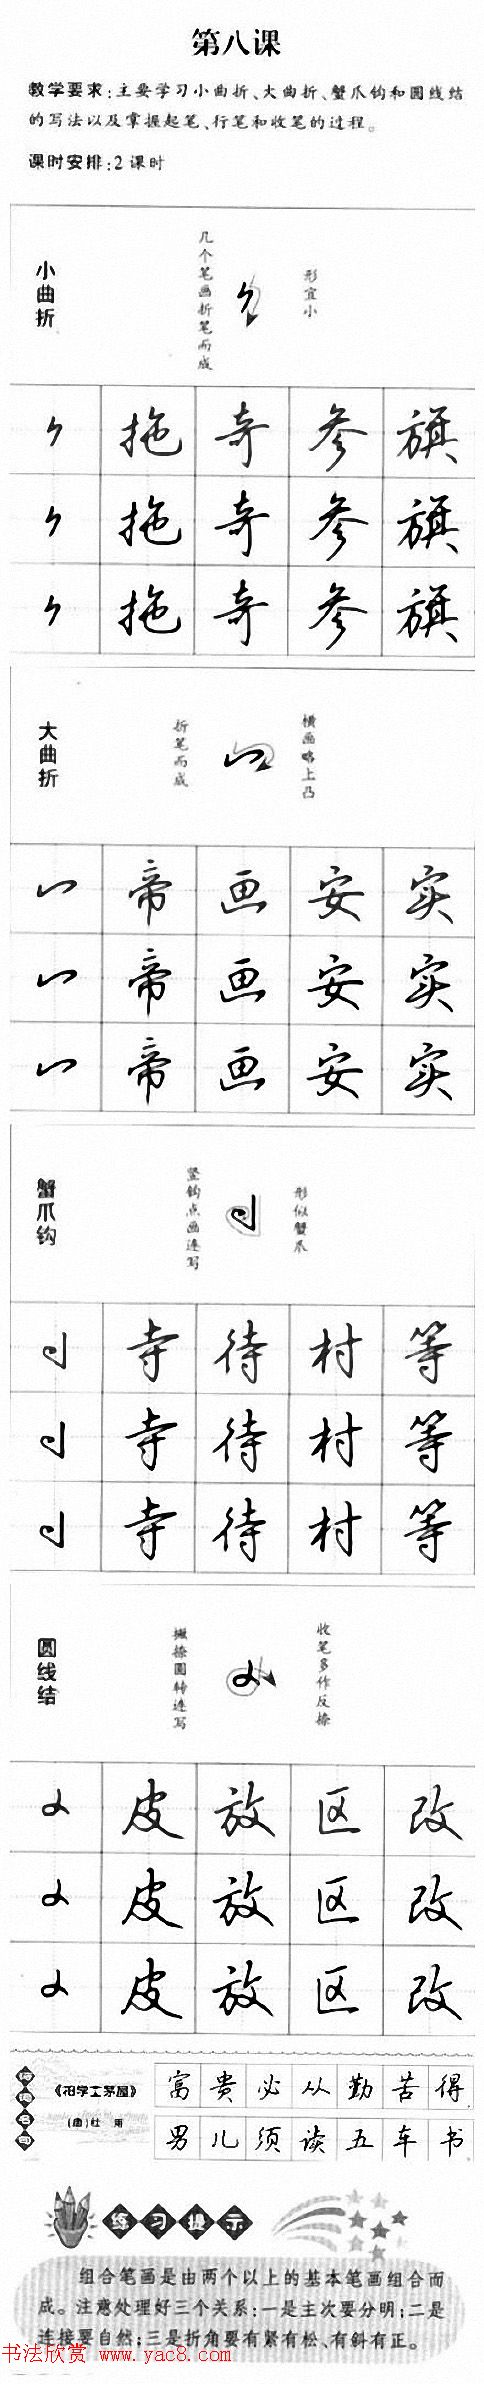 第八课
教学要求：主要学习小曲折、大曲折、蟹爪钩和圆线结
的写法以及掌握起笔、行笔和收笔的过程。
课时安排：2课时
小曲折
几个笔画折笔而成
形宜小
拖奇参旗
拖奇参旗
拖奇参旗
大曲折
折笔而成
横画略上凸
帝画安实
帝画安实
帝画安实
蟹爪钩
竖钩点画连写
形似蟹爪
寺待村等
寺待村等
寺待村等
圆线结
撇捺圆转连写
收笔多作反捺
皮放区改
皮放区改
皮放区改
诗词名句
《柏学士茅屋》
(唐)杜甫
富贵必从勤苦得
男儿须读五车书
练习提示
组合笔画是由两个以上的基本笔画组合而
成。注意处理好三个关系：一是主次要分明；二是
连接要自然；三是折角要有紧有松、有斜有正。
书法欣赏 www.yac8.com